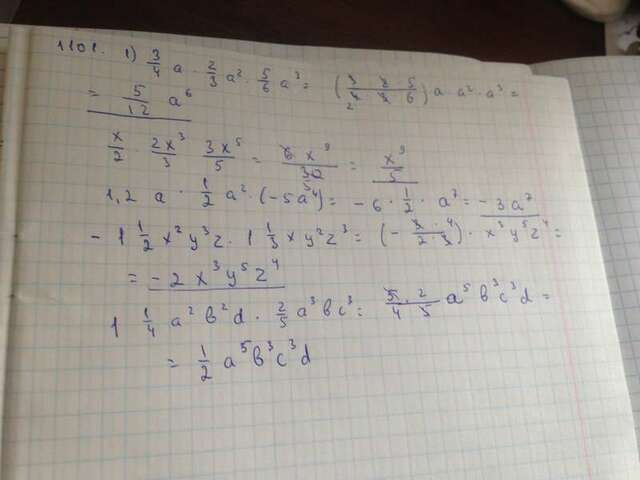 1101. 1) 3/4 a · 2/3 a² · 5/6 a³ = (3 · 2 · 5 / 4 · 3 · 6) a · a² · a³ =
= 5/12 a⁶
x/2 · 2x³/3 · 3x⁵/5 = 6x⁹/30 = x⁹/5
1,2 a · 1/2 a² · (-5a⁴) = -6 · 1/2 · a⁷ = -3a⁷
- 1 1/2 x²y³z · 1 1/3 xy²z³ = (- 3 · 4 / 2 · 3) · x³y⁵z⁴ =
= -2x³y⁵z⁴
1 1/4 a²b²d · 2/5 a³bc³ = 5 · 2 / 4 · 5 a⁵b³c³d =
= 1/2 a⁵b³c³d